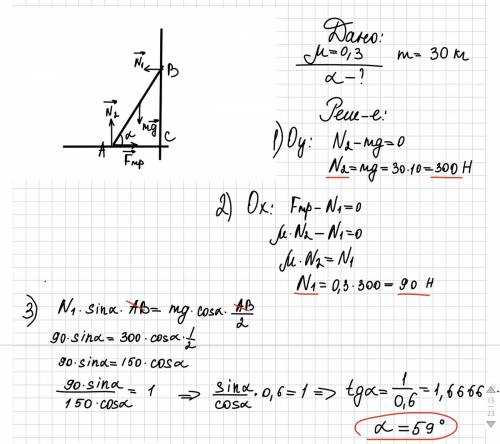 Дано:
μ=0,3 m= 30 кг
α-?
Реш-е:
N₁ B
N₂ mg
α
A Fтр C
1) Oy: N₂-mg=0
N₂=mg=30·10=300 Н
2) Ox: Fтр-N₁=0
μ·N₂-N₁=0
μ·N₂=N₁
N₁=0,3·300=90 Н
3) N₁·sinα·AB=mg·cosα·AB/2
90·sinα=300·cosα·1/2
90·sinα=150·cosα
90·sinα/150·cosα=1 ⇒ sinα/cosα·0,6=1 ⇒ tgα=1/0,6=1,6666
α=59°